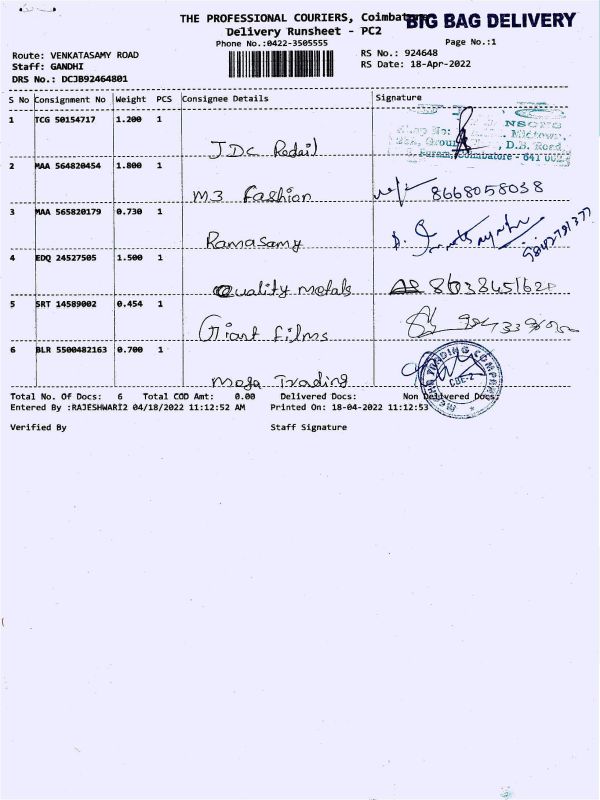 THE PROFESSIONAL COURIERS, Coimbatore
BIG BAG DELIVERY
Delivery Runsheet - PC2
Phone No.:0422-3505555
Page No.:1
Route: VENKATASAMY ROAD
RS No.: 924648
Staff: GANDHI
RS Date: 18-Apr-2022
DRS No.: DCJB92464801
S No Consignment No Weight PCS Consignee Details Signature
1 TCG 50154717 1.200 1
NSONS
Shop No: Midtown,
D.B. Road,
Puram, Coimbatore - 641 002
JDC Redail
2 MAA 564820454 1.800 1
M3 Fashion 8668058038
3 MAA 565820179 0.730 1
Ramasamy
4 EDQ 24527505 1.500 1
Quality metals
5 SRT 14589002 0.454 1
Giant Films
6 BLR 5500482163 0.700 1
TRADING COMPANY
CBE-2
Mega Trading
Total No. Of Docs: 6 Total COD Amt: 0.00 Delivered Docs: Non Delivered Docs:
Entered By :RAJESHWARI2 04/18/2022 11:12:52 AM Printed On: 18-04-2022 11:12:53
Verified By Staff Signature